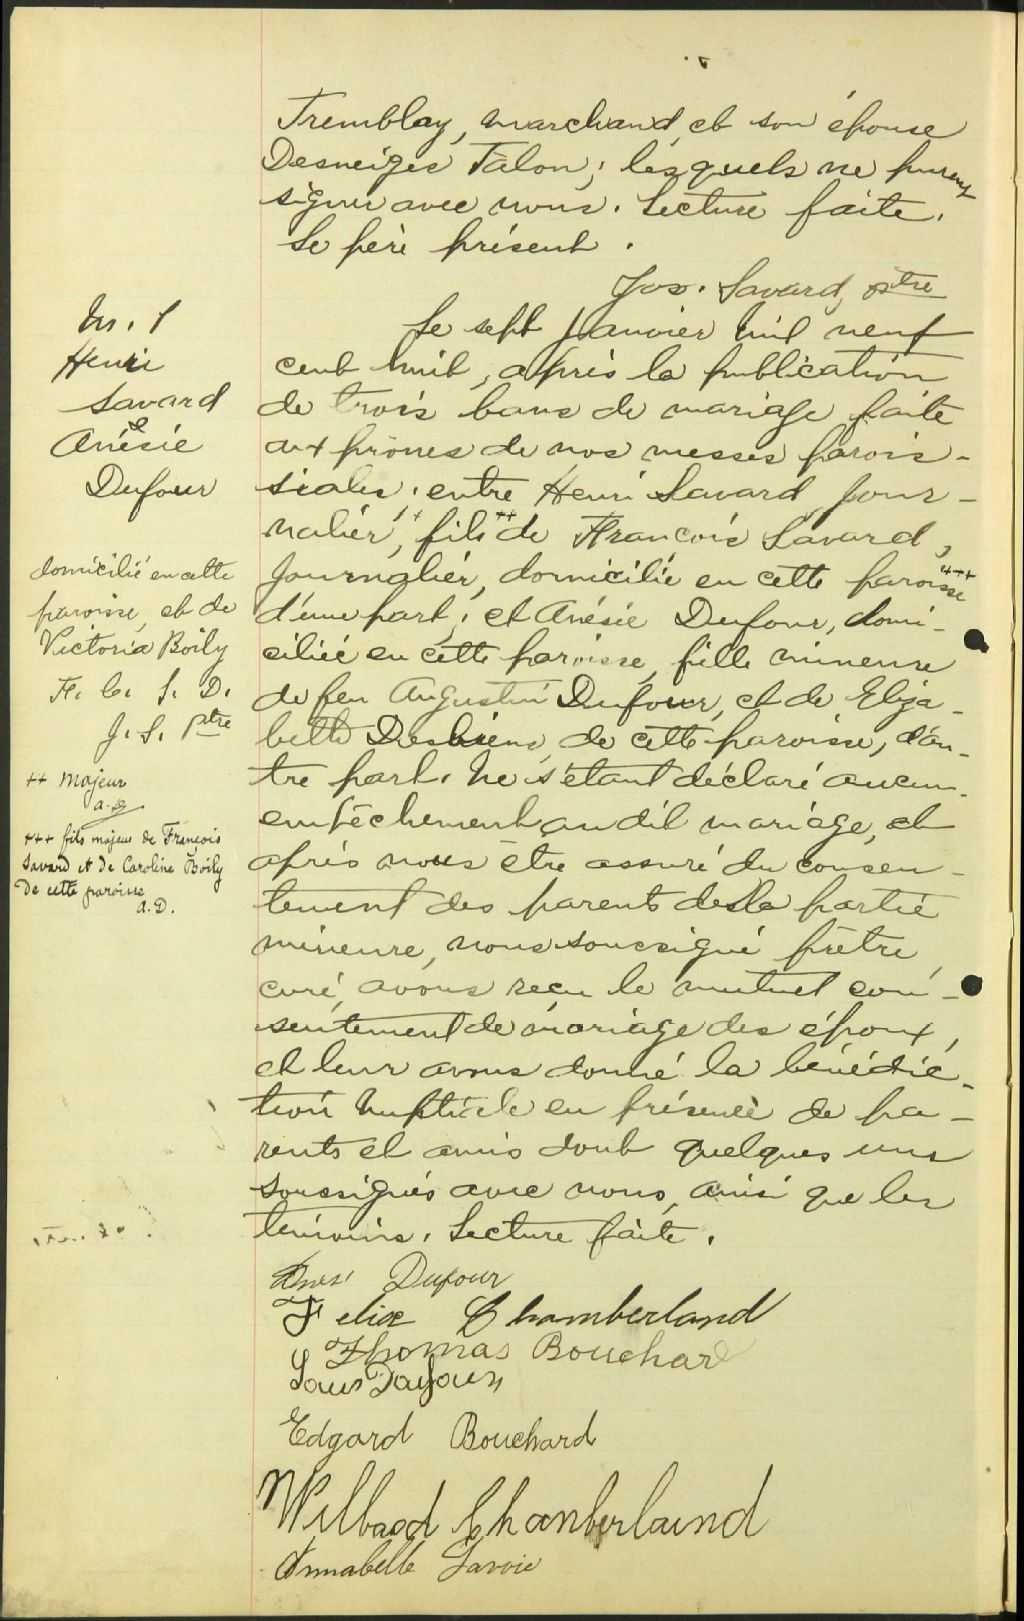 Tremblay, marchand, et son épouse
Desneiges Talon; lesquels ne purent
signer avec nous. Lecture faite.
Le père présent.
Jos. Savard, ptre
M. 1
Henri
Savard
&
Anésie
Dufour
Le sept Janvier mil neuf
cent huit, après la publication
de trois bans de mariage faite
aux prônes de nos messes parois-
siales, entre Henri Savard, jour-
nalier, + fils ++ de François Savard,
journalier, domicilié en cette paroisse +++
d'une part; et Anésie Dufour, domi-
ciliée en cette paroisse, fille mineure
de feu Augustin Dufour, et de Eliza-
beth Desbiens, de cette paroisse, d'au-
tre part. Ne s'étant déclaré aucun
empêchement au dit mariage, et
après nous être assuré du consen-
tement des parents de la partie
mineure, nous soussigné prêtre,
curé, avons reçu le mutuel con-
sentement de mariage des époux,
et leur avons donné la bénédic-
tion nuptiale en présence de pa-
rents et amis dont quelques uns
soussignés avec nous, ainsi que les
témoins. Lecture faite.
domicilié en cette
paroisse, et de
Victoria Boily
J. S. Ptre
++ majeur
+++ fils majeur de François
Savard et de Caroline Boily
De cette paroisse
A.D.
Dufour
Felix Chamberland
Thomas Bouchard
Edgard Bouchard
Wilbaod Chanberlaind
Annabelle Savoie